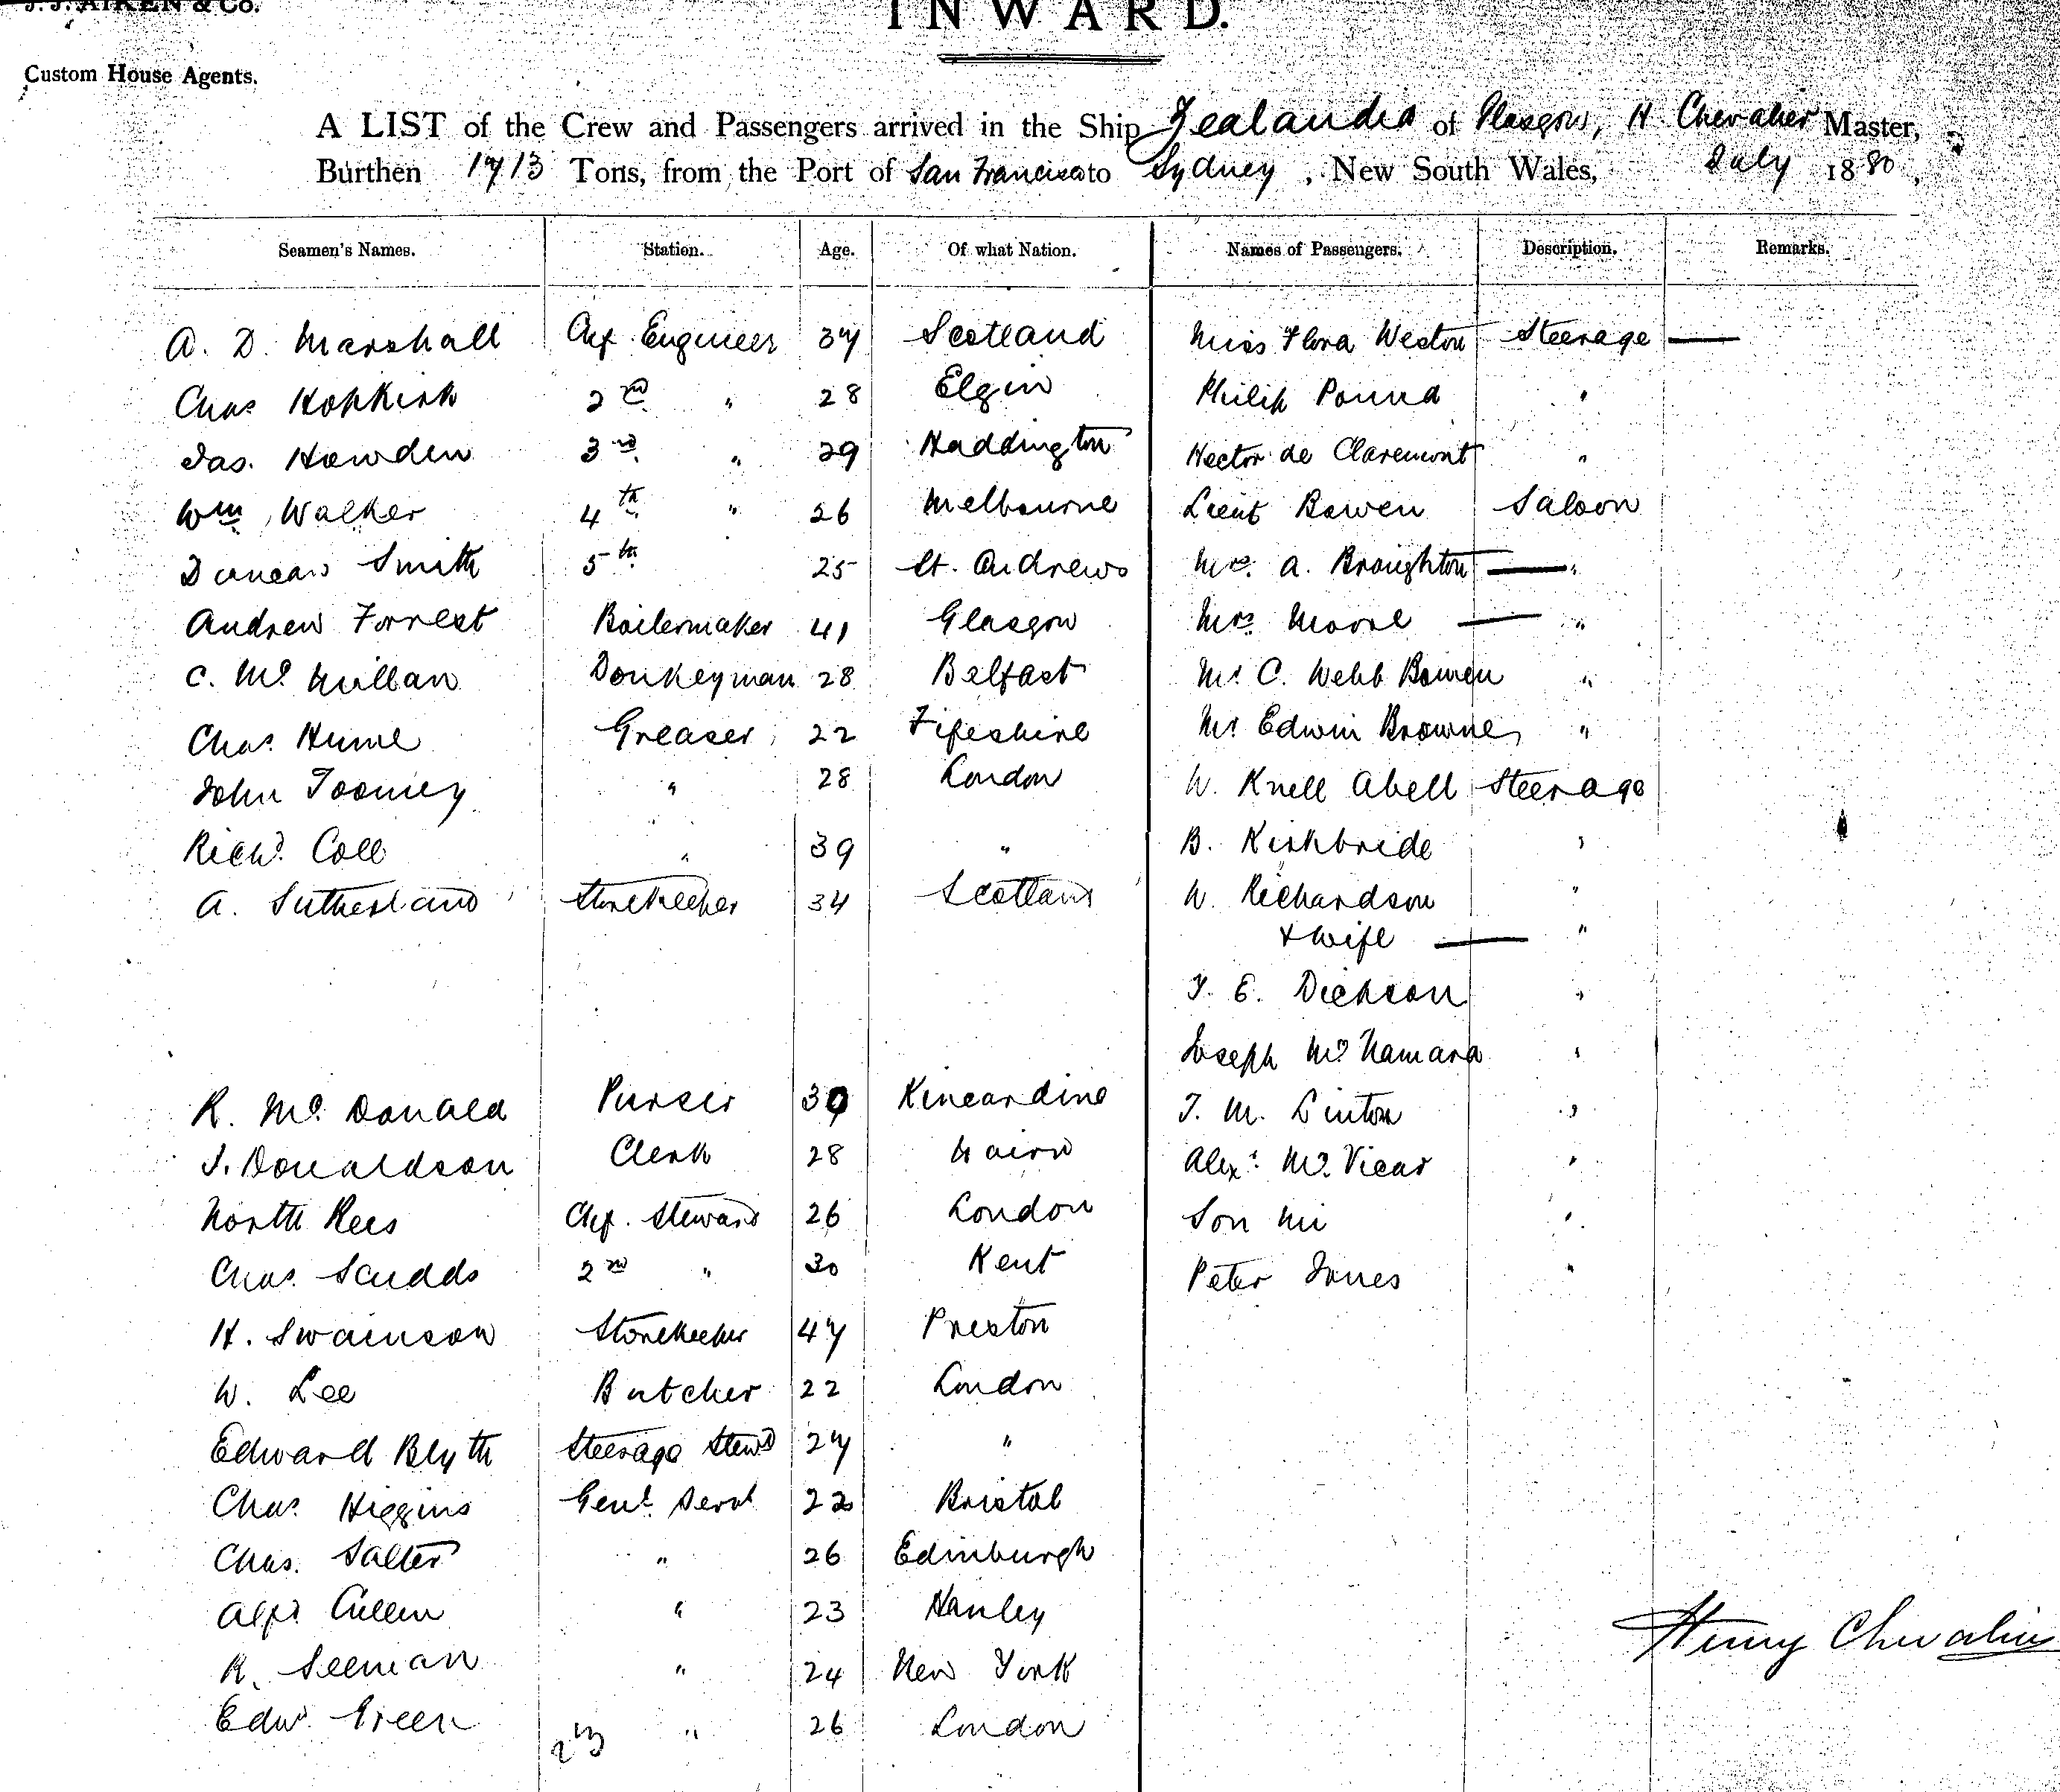 J. J. AIKEN & Co.
INWARD.
Custom House Agents.
A LIST of the Crew and Passengers arrived in the Ship Zealandia of Glasgow, H Chevalier Master,
Burthen 1713 Tons, from the Port of San Francisco to Sydney, New South Wales, July 1880,
Seamen's Names. Station. Age. Of what Nation. Names of Passengers. Description. Remarks.
A. D. Marshall Chf Engineer 37 Scotland Miss Flora Weston Steerage —
Chas Hopkirk 2nd " 28 Elgin Philip Pound "
Jas. Howden 3rd " 29 Haddington Hector de Claremont "
Wm Walker 4th " 26 Melbourne Lieut Bowen Saloon
Duncan Smith 5th 25 St. Andrews Mrs. A. Broughton — "
Andrew Forrest Boilermaker 41 Glasgow Mrs Moore — "
C. Mc Millan Donkeyman 28 Belfast Mr C. Webb Bowen "
Chas. Hume Greaser 22 Fifeshire Mr Edwin Browne "
John Toomey " 28 London W. Knell Abell Steerage
Richd. Coll " 39 " B. Kirkbride "
A. Sutherland Storekeeper 34 Scotland W. Richardson "
& wife — "
E. Dickson "
Joseph Mc Namara "
R. Mc Donald Purser 39 Kincardine T. M. Linton "
J. Donaldson Clerk 28 Nairn Alexr. Mc. Vicar "
North Rees Chf. Steward 26 London Son "
Chas. Scudds 2nd " 30 Kent Peter Jones "
H. Swainson Storekeeper 47 Preston
W. Lee Butcher 22 London
Edward Blyth Steerage Stewd 27 "
Chas. Higgins Genl. Servt 22 Bristol
Chas. Salter " 26 Edinburgh
Alfd. Cullen " 23 Hanley
R. Seeman " 24 New York
Edwd. Green " 26 London
23
Henry Chevalier